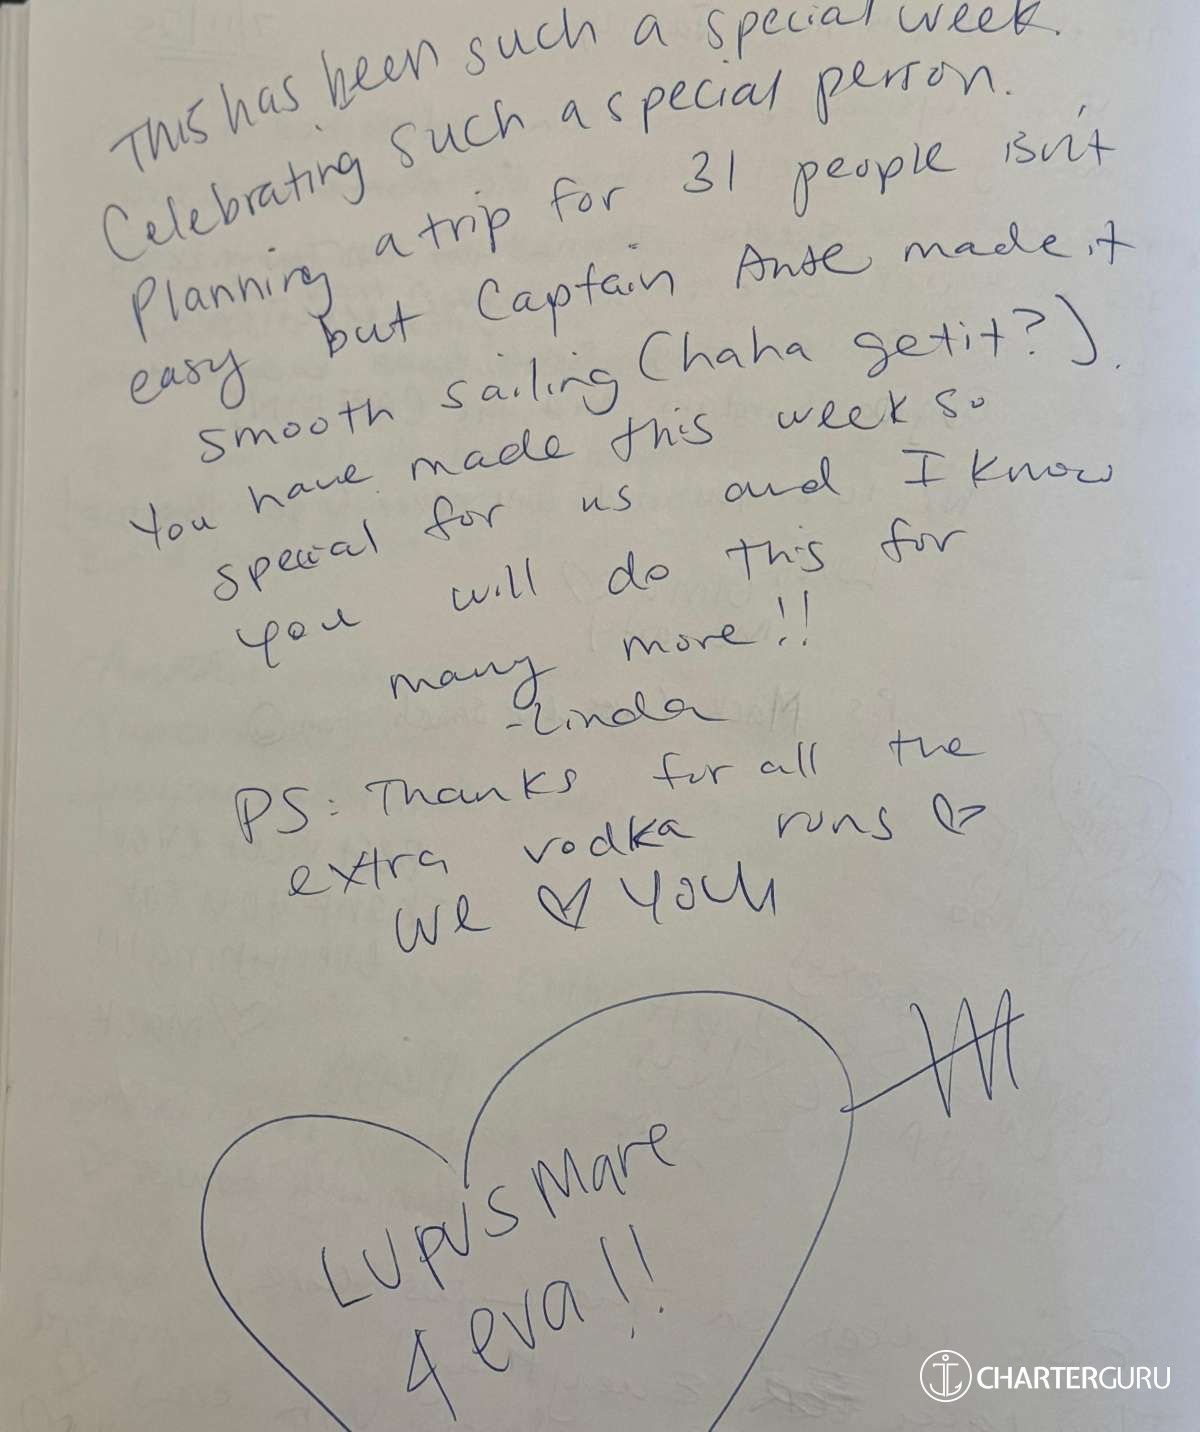 This has been such a special week.
Celebrating such a special person.
Planning a trip for 31 people isn't
easy but Captain Ante made it
smooth sailing (haha get it?).
You have made this week so
special for us and I know
you will do this for
many more!!
-Linda
PS: Thanks for all the
extra vodka runs ♡
we ♡ you
LUPUS Mare
4 eva!!
CHARTERGURU